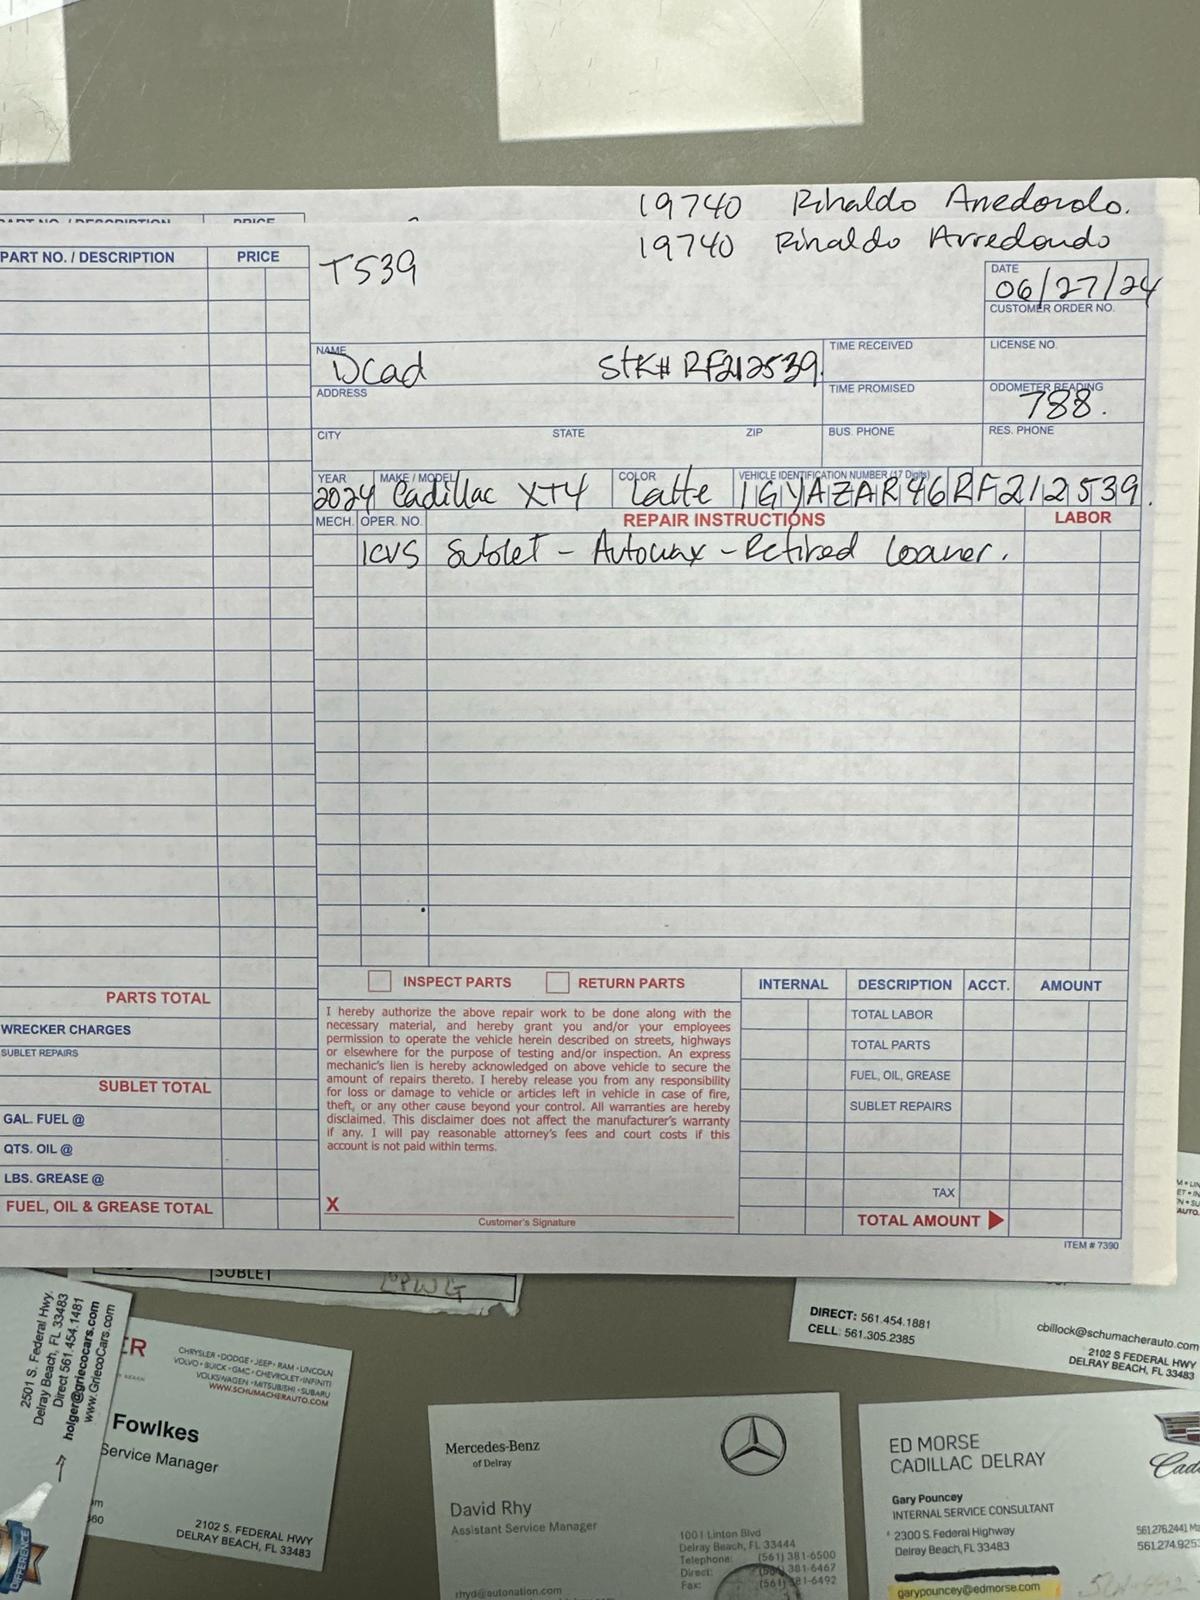 19740 Rinaldo Arredondo.
19740 Rinaldo Arredondo
PART NO. / DESCRIPTION PRICE
PART NO. / DESCRIPTION PRICE
T539
DATE
06/27/24
CUSTOMER ORDER NO.
NAME
DCad Stk# RF212539.
TIME RECEIVED
LICENSE NO.
ADDRESS
TIME PROMISED
ODOMETER READING
788.
CITY STATE ZIP
BUS. PHONE
RES. PHONE
YEAR MAKE / MODEL COLOR VEHICLE IDENTIFICATION NUMBER (17 Digits)
2024 Cadillac XT4 Latte 1GYAZAR46RF212539.
MECH. OPER. NO. REPAIR INSTRUCTIONS LABOR
ICVS Sublet - Autowax - Retired Loaner.
INSPECT PARTS RETURN PARTS
INTERNAL DESCRIPTION ACCT. AMOUNT
PARTS TOTAL
WRECKER CHARGES
SUBLET REPAIRS
SUBLET TOTAL
GAL. FUEL @
QTS. OIL @
LBS. GREASE @
FUEL, OIL & GREASE TOTAL
I hereby authorize the above repair work to be done along with the
necessary material, and hereby grant you and/or your employees
permission to operate the vehicle herein described on streets, highways
or elsewhere for the purpose of testing and/or inspection. An express
mechanic's lien is hereby acknowledged on above vehicle to secure the
amount of repairs thereto. I hereby release you from any responsibility
for loss or damage to vehicle or articles left in vehicle in case of fire,
theft, or any other cause beyond your control. All warranties are hereby
disclaimed. This disclaimer does not affect the manufacturer's warranty
if any. I will pay reasonable attorney's fees and court costs if this
account is not paid within terms.
X
Customer's Signature
TOTAL LABOR
TOTAL PARTS
FUEL, OIL, GREASE
SUBLET REPAIRS
TAX
TOTAL AMOUNT
ITEM # 7390
SUBLET
2501 S. Federal Hwy.
Delray Beach, FL 33483
Direct 561.454.1481
holger@griecocars.com
www.GriecoCars.com
DIFFERENCE
ER
CHRYSLER • DODGE • JEEP • RAM • LINCOLN
VOLVO • BUICK • GMC • CHEVROLET • INFINITI
VOLKSWAGEN • MITSUBISHI • SUBARU
WWW.SCHUMACHERAUTO.COM
Fowlkes
Service Manager
2102 S. FEDERAL HWY
DELRAY BEACH, FL 33483
DIRECT: 561.454.1881
CELL: 561.305.2385
cbillock@schumacherauto.com
2102 S FEDERAL HWY
DELRAY BEACH, FL 33483
Mercedes-Benz
of Delray
David Rhy
Assistant Service Manager
1001 Linton Blvd
Delray Beach, FL 33444
Telephone: (561) 381-6500
Direct: (561) 381-6467
Fax: (561) 381-6492
rhyd@autonation.com
ED MORSE
CADILLAC DELRAY
Gary Pouncey
INTERNAL SERVICE CONSULTANT
2300 S. Federal Highway
Delray Beach, FL 33483
561.276.2441
561.274.925
garypouncey@edmorse.com